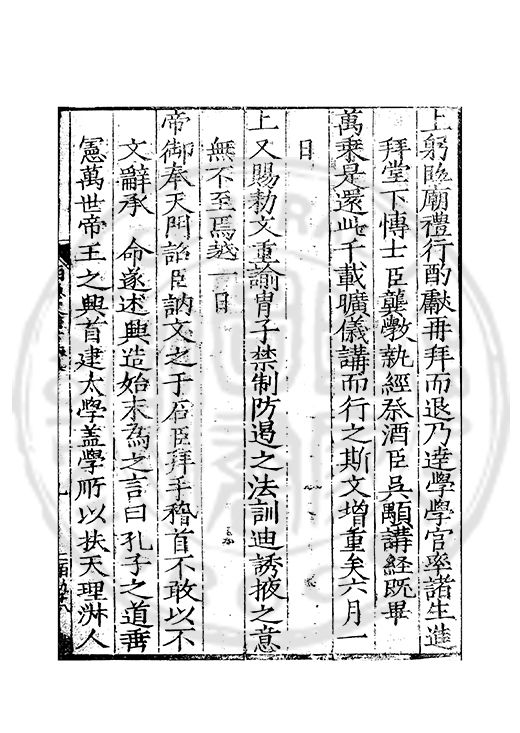 上躬臨廟禮行酌獻再拜而退乃達學學官率諸生進
拜堂下博士臣龔斆執經祭酒臣吳顒講經既畢
萬乘是還此千載曠儀講而行之斯文增重矣六月一
日
上又賜勅文重諭胄子禁制防遏之法訓迪誘掖之意
無不至焉越一日
帝御奉天門詔臣訥文之于石臣拜手稽首不敢以不
文辭承　命遂述興造始末為之言曰孔子之道垂
憲萬世帝王之興首建太學蓋學所以扶天理淋人